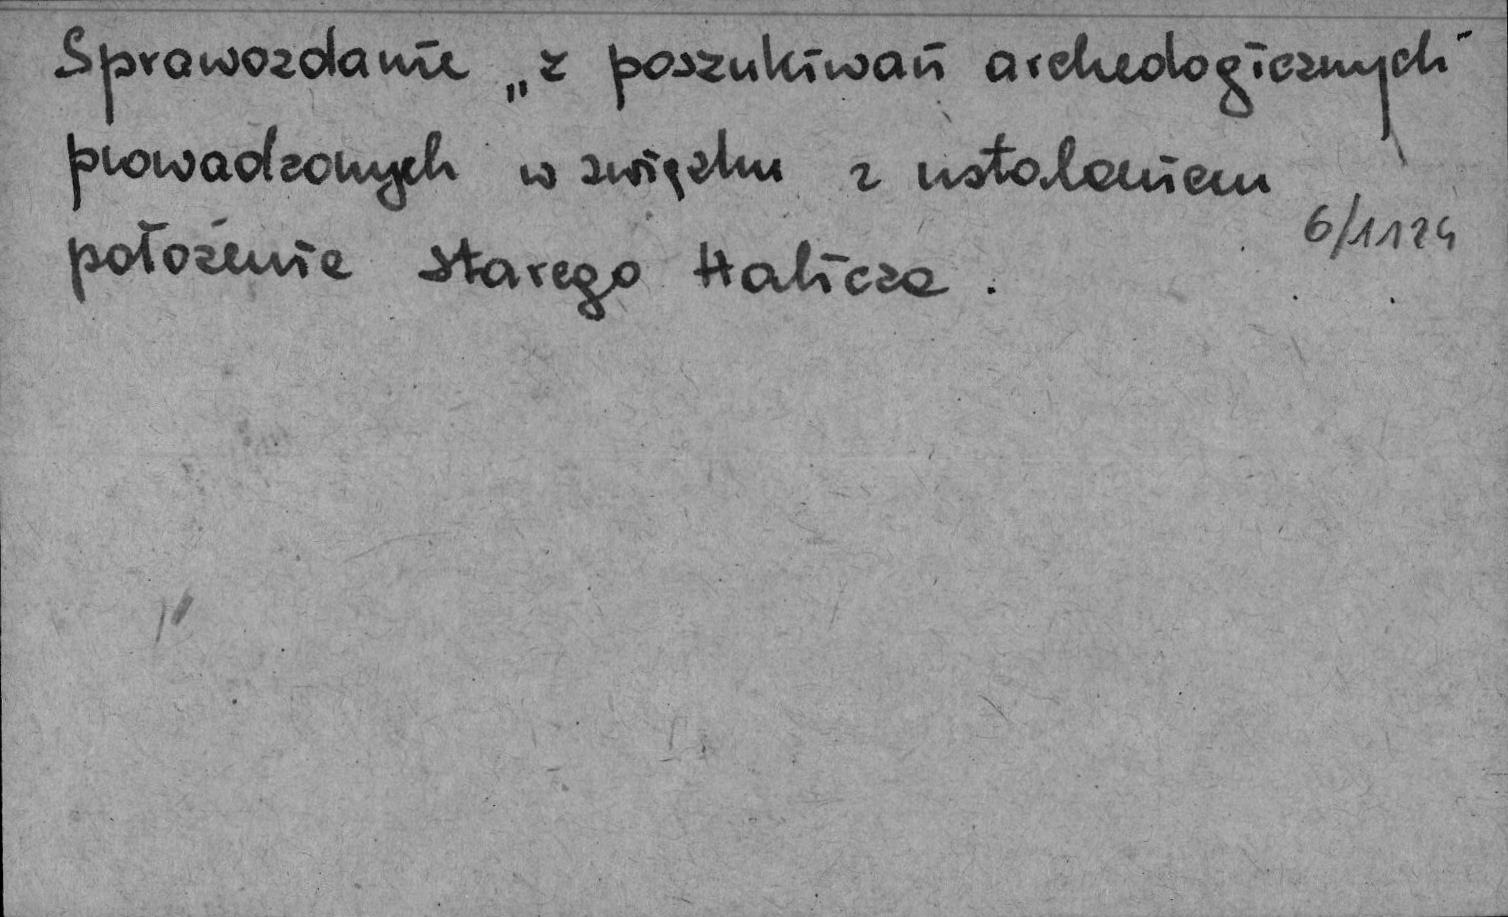 Sprawozdanie „z poszukiwań archeologicznych”
prowadzonych w związku z ustaleniem
położenia starego Halicza.
6/1124